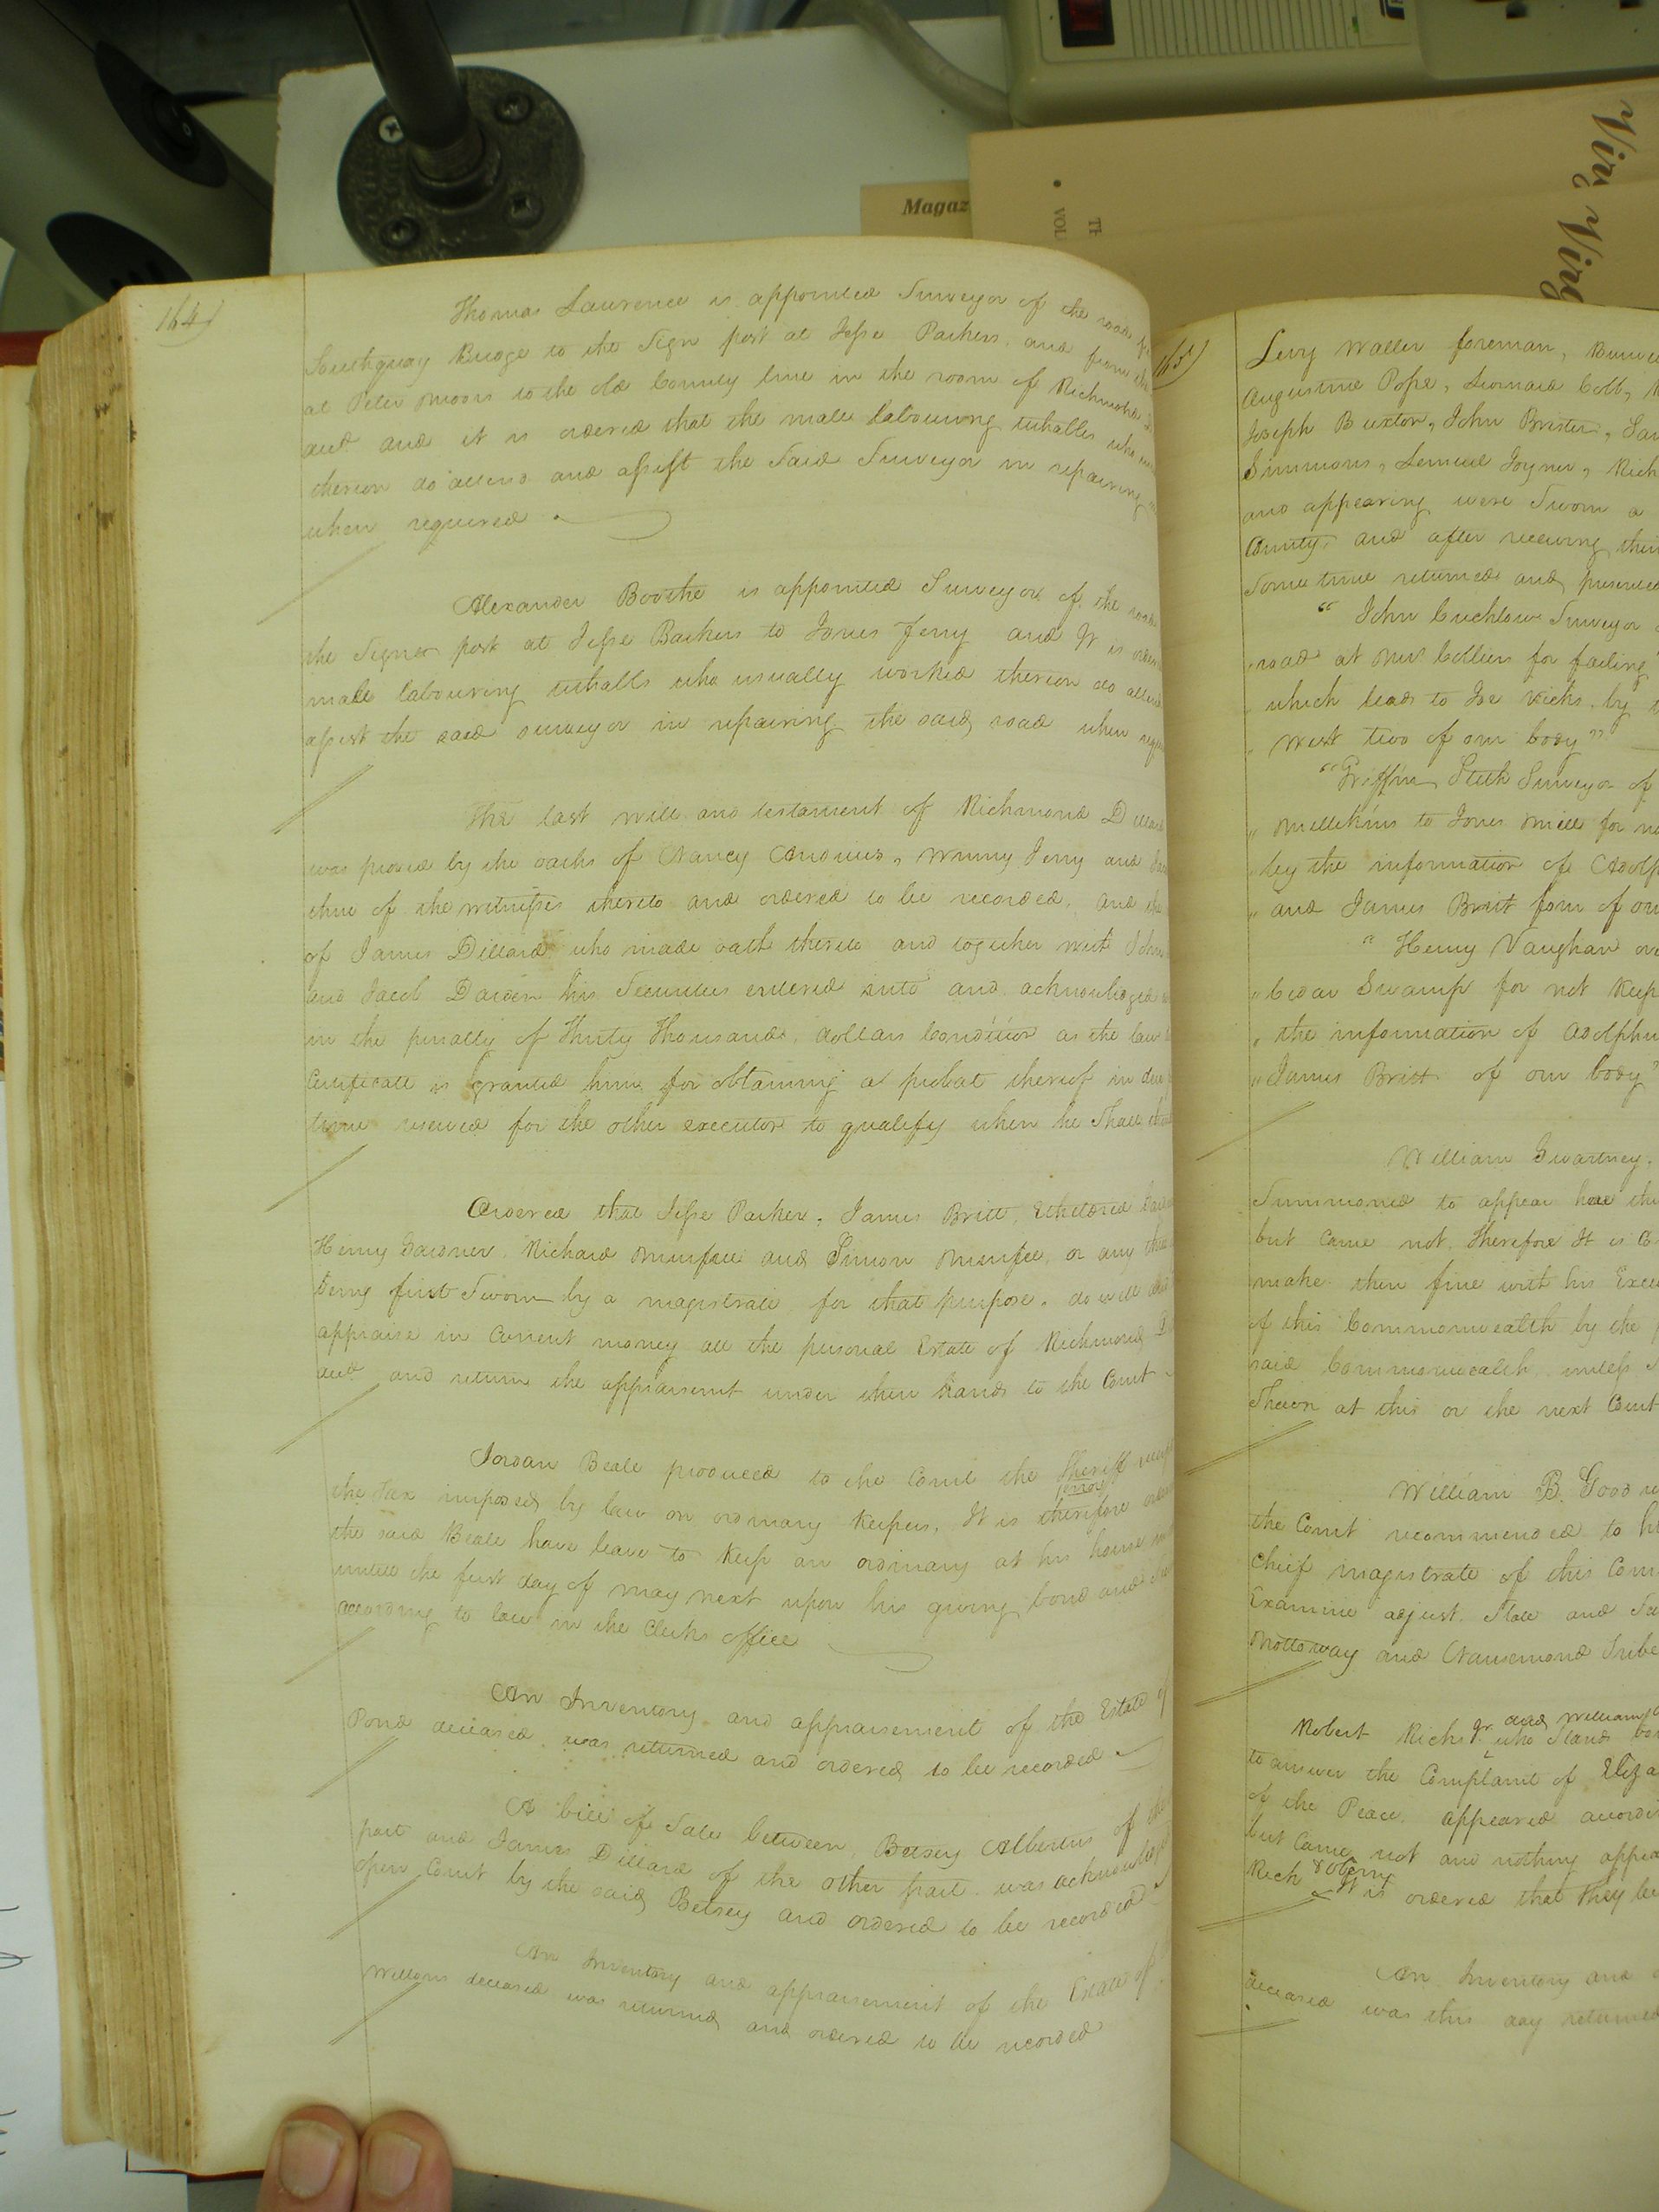 Magaz
VOL
TH
Virg
Virg
164)
Thomas Laurence is appointed Surveyor of the road
Southquay Bridge to the Sign post at Jesse Parkers, and from
at Peter Moors to the old County line in the room of Richmond
and it is ordered that the male labouring tithables who
thereon do attend and assist the Said Surveyor in repairing
when required
Alexander Boothe is appointed Surveyor of the road
the Signer post at Jesse Barkers to Jones ferry and It is
male labouring tithables who usually worked thereon do attend
assist the said surveyor in repairing the said road when
The last will and testament of Richmond Dillard
was proved by the oaths of Nancy Andrews, Winny Jerry and
of the witnesses thereto and ordered to be recorded, and
of James Dillard who made oath thereto and together with John
and Jacob Darden his Securities entered into and acknowledged
in the penalty of Thirty Thousand dollars Condition as the law
Certificate is granted him for obtaining a probat thereof in due
time reserved for the other executor to qualify when he Shall
Ordered that Jesse Parker, James Britt, Etheldred
Henry Gardner, Richard and Simon or any three
being first Sworn by a magistrate for that purpose, do well
appraise in Current money all the personal Estate of Richmond
and return the appraisement under their hands to the Court
Jordan Beale produced to the Court the Sheriff
the tax imposed by law on ordinary keepers, It is therefore
the said Beale have leave to Keep an ordinary at his house
untill the first day of may next upon his giving bond and
according to law in the Clerks office
An Inventory and appraisement of the Estate of
Pond deceased, was returned and ordered to be recorded
A bill of Sale between Betsey Albertus of
part and James Dillard of the other part was acknowledged
open Court by the said Betsey and ordered to be recorded
An Inventory and appraisement of the Estate of
Williams deceased was returned and ordered to be recorded
165)
Levy Waller foreman,
Augustine Pope, Leonard Cobb,
Joseph Buxton, John Brister,
Simmons, Lemuel Joyner, Rich
and appearing were Sworn a
County, and after receiving their
Some time returned and presented
" John Surveyor
road at Mrs Colliers for failing
which leads to Joe Vicks, by
West two of our body"
"Griffin Stith Surveyor of
Millikins to Jones Mill for
by the information of Adolp
and James Britt four of our
" Henry Vaughan
Cedar Swamp for not Keep
the information of Adolphu
James Britt of our body"
William Gwaltney,
Summoned to appear here
but came not, Therefore It is
make their fine with his Exce
of this Commonwealth by the
said Commonwealth unless
Shewn at this or the next Court
William B. Good
the Court recommended to
Chief magistrate of this Com
Examine adjust, State and
Nottoway and Nansemond Tribe
and William
Robert Ricks Jr. who Stands
to answer the Complaint of Eliza
of the Peace, appeared accordi
but came not and nothing appea
Rich
It is ordered that they be
An Inventory and
deceased was this day returned